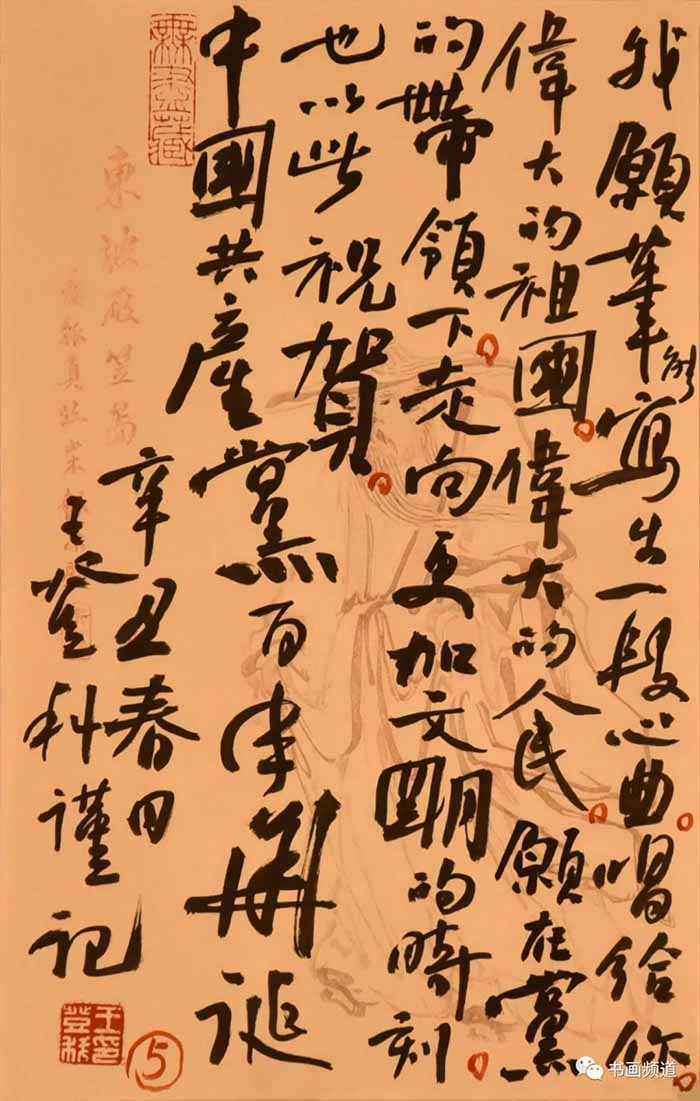 我願筆寫出一段心曲唱给你
偉大的祖國偉大的人民願在黨
的帶領下走向更加文朙的時刻
也以此祝賀
中國共產黨百年華誕
辛丑春日
王登科謹記
無盡藏
東坡
王登科印
5
书画频道